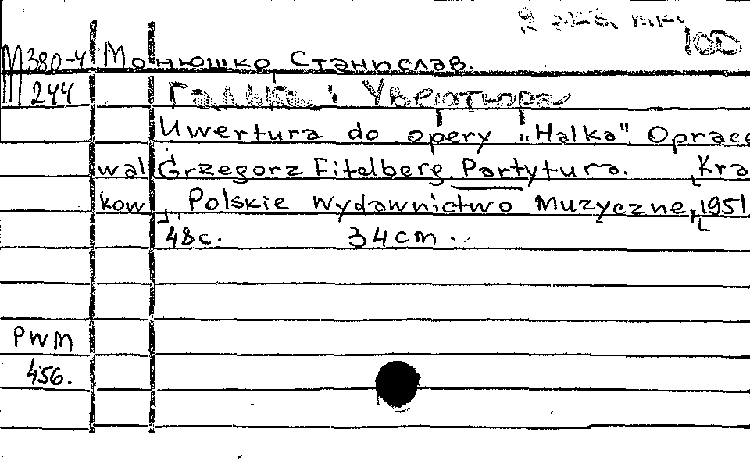 100
М380-4 Монюшко, Станислав.
244 Галька: Увертюра
Uwertura do opery „Halka". Opraco
wal Grzegorz Fitelberg. Partytura. Kra
kow, Polskie Wydawnictwo Muzyczne, 1951.
48с. 34cm.
PWM
456.